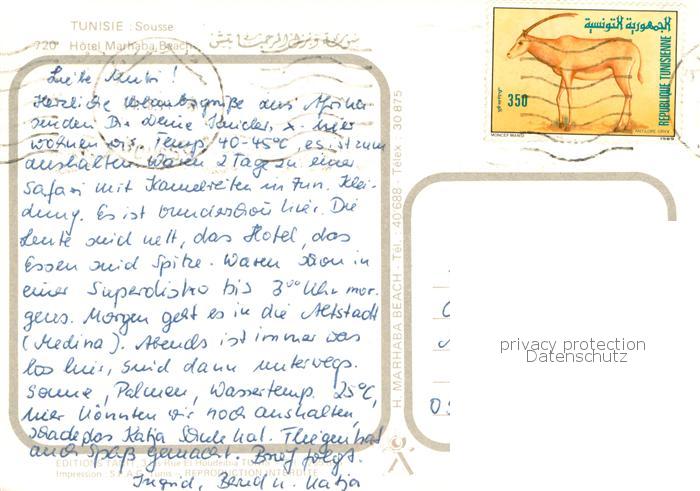 TUNISIE : Sousse
720 Hôtel Marhaba Beach
Liebe Mutti !
Herzliche Urlaubsgrüße aus Afrika
senden Dir Deine Kinder, x- hier
wohnen wir. Temp. 40-45°C, es ist zum
aushalten. Waren 2 Tage zu einer
Safari mit Kamelreiten in tun. Klei-
dung. Es ist wunderschön hier. Die
Leute sind nett, das Hotel, das
Essen sind Spitze. Waren schon in
einer Superdisko bis 3⁰⁰ Uhr mor-
gens. Morgen geht es in die Altstadt
(Medina). Abends ist immer was
los hier, sind dann unterwegs.
Sonne, Palmen, Wassertemp. 25°C,
hier könnten wir noch aushalten,
schade, das Katja Schule hat. Fliegen hat
auch Spaß gemacht. Brief folgt.
Ingrid, Bernd u. Katja
EDITIONS TANIT
Impression : REPRODUCTION INTERDITE
H. MARHABA BEACH - Tél. : 40'688 - Télex : 30 875
الجمهورية التونسية
REPUBLIQUE TUNISIENNE
350
ANTILOPE ORYX
1989
privacy protection
Datenschutz